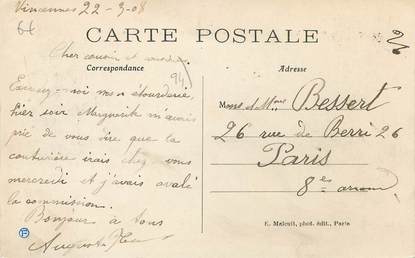 Vincennes 22-3-08
CARTE POSTALE
Correspondance
Adresse
64
94
26
Cher cousin et
Excusez-moi mon étourderie,
hier soir Marguerite m'avais
prié de vous dire que la
couturière irais chez vous
mercredi et j'avais avalé
la commission.
Bonjour à tous
Auguste
Mons et Mme Bessert
26 rue de Berri 26
Paris
8e arron
E. Malcuit, phot. édit., Paris
F